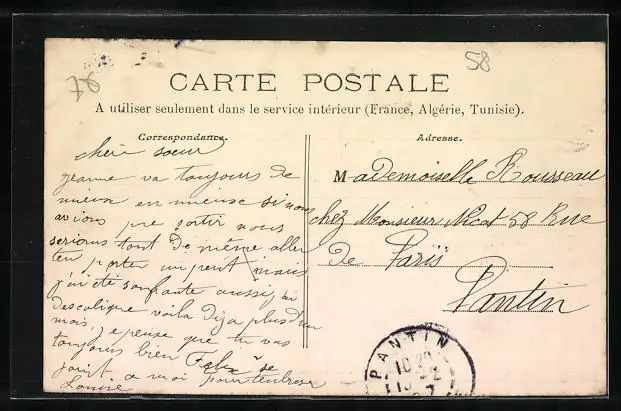 76
58
CARTE POSTALE
A utiliser seulement dans le service intérieur (France, Algérie, Tunisie).
Correspondance.
chère soeur
jeanne va toujours de
mieux en mieuse si nous
avions pue sortir nous
serions tout de même aller
ten porter un petit mais
j'ai été souffante aussi j'ai
des colique voila deja plus d'un
mois, je pense que tu vas
toujours bien Felix se
joint a moi pour tenbrasser
Louise
Adresse.
Mademoiselle Rousseau
chez Monsieur Nicot 58 Rue
de Paris
Pantin
PANTIN